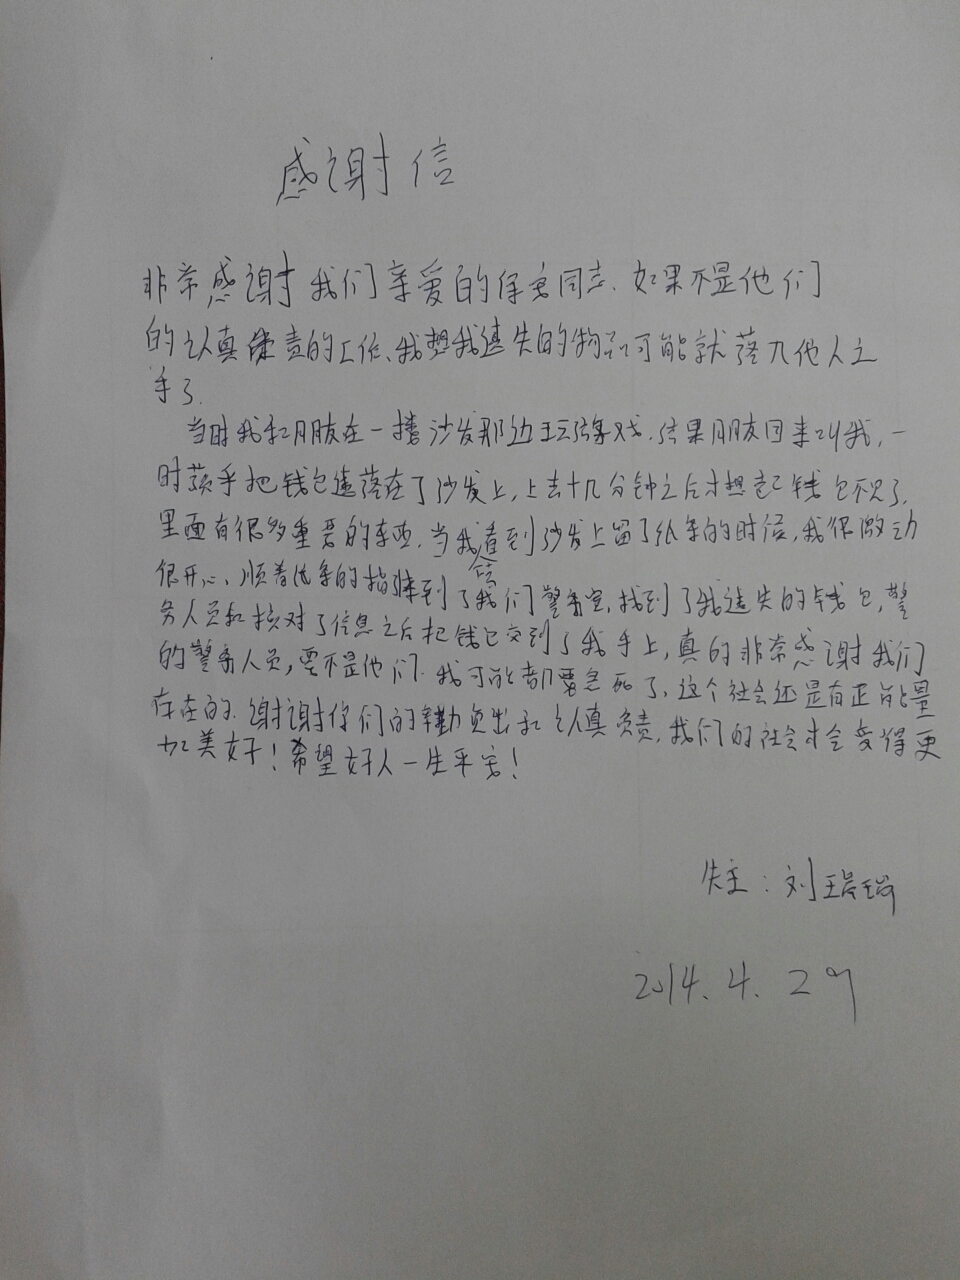 感谢信
非常感谢我们亲爱的保安同志.如果不是他们
的认真负责的工作、我想我遗失的物品可能就落入他人之
手了.
当时我和朋友在一楼沙发那边玩游戏.结果朋友回来叫我,一
时疏手把钱包遗落在了沙发上,上去十几分钟之后才想起钱包不见了,
里面有很多重要的东西.当我看到沙发上留了纸条的时候,我很激动
很开心、顺着纸条的指示到了我们警务室,找到了我遗失的钱包,警
务人员和核对了信息之后把钱包交到了我手上,真的非常感谢我们
的警务人员,要不是他们.我可能都要急死了、这个社会还是有正能量
存在的.谢谢你们的辛勤负出和认真负责,我们的社会才会变得更
加美好!希望好人一生平安!
失主:刘
2014.4.29